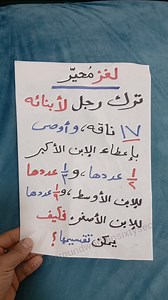 لغز مُحيّر
ترك رجل لأبنائه
١٧ ناقه، و أوصى
بإعطاء الابن الأكبر
١/٢ عددها، و ١/٣ عددها
للابن الأوسط، و ١/٩ عددها
للابن الأصغر فكيف
يمكن تقسيمها؟